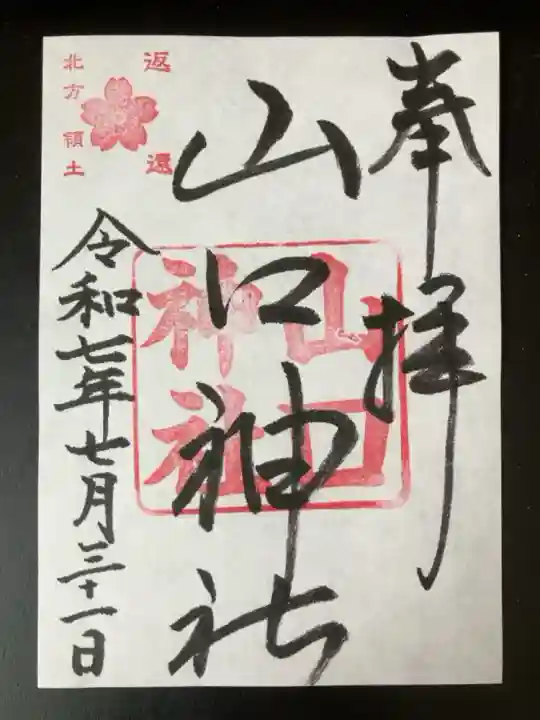 奉拝
山口神社
山口
神社
返還
北方領土
令和七年七月三十一日